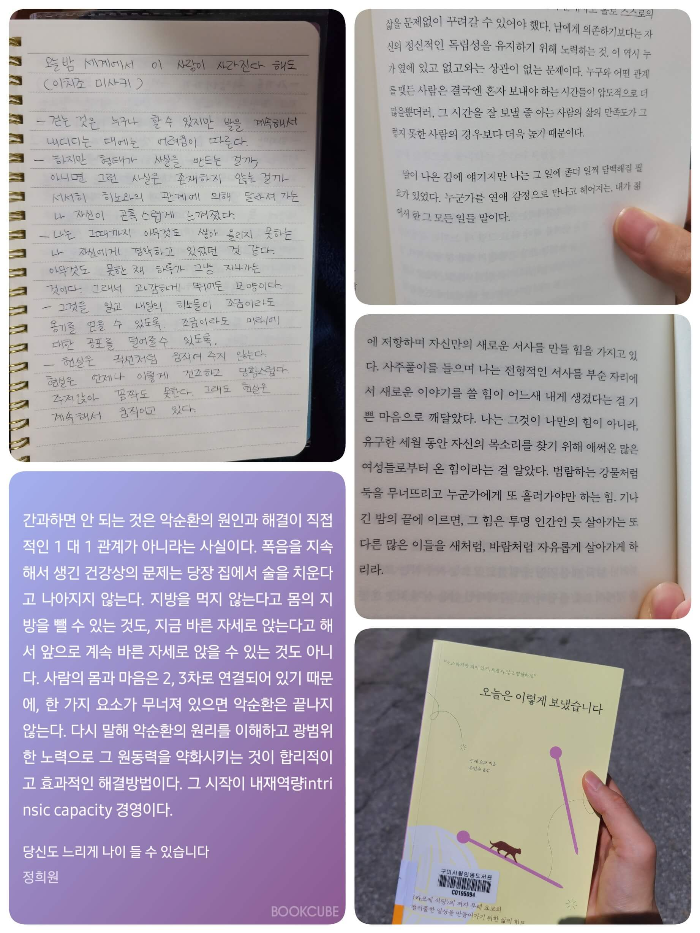 오늘밤 세계에서 이 사랑이 사라진다 해도
(이치조 미사키)
- 걷는 것은 누구나 할 수 있지만 발을 계속해서
내디디는 데에는 어려움이 따른다.
- 하지만 형태가 사실을 만드는 걸까,
아니면 그런 사실은 존재하지 않을 걸까.
서서히 히노와의 관계에 의해 달라져 가는
나 자신이 곤혹스럽게 느껴졌다.
- 나는 그때까지 아무것도 쌓아 올리지 못하는
나 자신에게 절망하고 있었던 것 같다.
아무것도 못한 채 하루가 그냥 지나가는
것이다. 그래서 과감하게 뛰어든 모양이다.
- 그것을 읽고 내일의 히노들이 조금이라도
용기를 얻을 수 있도록. 조금이라도 미래에
대한 공포를 덜어줄 수 있도록.
- 현실은 직선처럼 움직여 주지 않는다.
현실은 언제나 이렇게 건조하고 답답스럽다.
주저앉아 꼼짝도 못한다. 그래도 현실은
계속해서 움직이고 있다.
간과하면 안 되는 것은 악순환의 원인과 해결이 직접
적인 1 대 1 관계가 아니라는 사실이다. 폭음을 지속
해서 생긴 건강상의 문제는 당장 집에서 술을 치운다
고 나아지지 않는다. 지방을 먹지 않는다고 몸의 지
방을 뺄 수 있는 것도, 지금 바른 자세로 앉는다고 해
서 앞으로 계속 바른 자세로 앉을 수 있는 것도 아니
다. 사람의 몸과 마음은 2, 3차로 연결되어 있기 때문
에, 한 가지 요소가 무너져 있으면 악순환은 끝나지
않는다. 다시 말해 악순환의 원리를 이해하고 광범위
한 노력으로 그 원동력을 약화시키는 것이 합리적이
고 효과적인 해결방법이다. 그 시작이 내재역량intri
nsic capacity 경영이다.
당신도 느리게 나이 들 수 있습니다
정희원
BOOKCUBE
삶을 문제없이 꾸려갈 수 있어야 했다. 남에게 의존하기보다는 자
신의 정신적인 독립성을 유지하기 위해 노력하는 것. 이 역시 누
가 옆에 있고 없고와는 상관이 없는 문제이다. 누구와 어떤 관계
를 맺든 사람은 결국엔 혼자 보내야 하는 시간들이 압도적으로 더
많을뿐더러, 그 시간을 잘 보낼 줄 아는 사람의 삶의 만족도가 그
렇지 못한 사람의 경우보다 더욱 높기 때문이다.
말이 나온 김에 얘기지만 나는 그 일에 좀더 일찍 담백해질 필
요가 있었다. 누군가를 연애 감정으로 만나고 헤어지는, 내가 겪
어서 한 그 모든 일들 말이다.
에 저항하며 자신만의 새로운 서사를 만들 힘을 가지고 있
다. 사주풀이를 들으며 나는 전형적인 서사를 부순 자리에
서 새로운 이야기를 쓸 힘이 어느새 내게 생겼다는 걸 기
쁜 마음으로 깨달았다. 나는 그것이 나만의 힘이 아니라,
유구한 세월 동안 자신의 목소리를 찾기 위해 애써온 많은
여성들로부터 온 힘이라는 걸 알았다. 범람하는 강물처럼
둑을 무너뜨리고 누군가에게 또 흘러가야만 하는 힘. 기나
긴 밤의 끝에 이르면, 그 힘은 투명 인간인 듯 살아가는 또
다른 많은 이들을 새처럼, 바람처럼 자유롭게 살아가게 하
리라.
오늘은 이렇게 보냈습니다